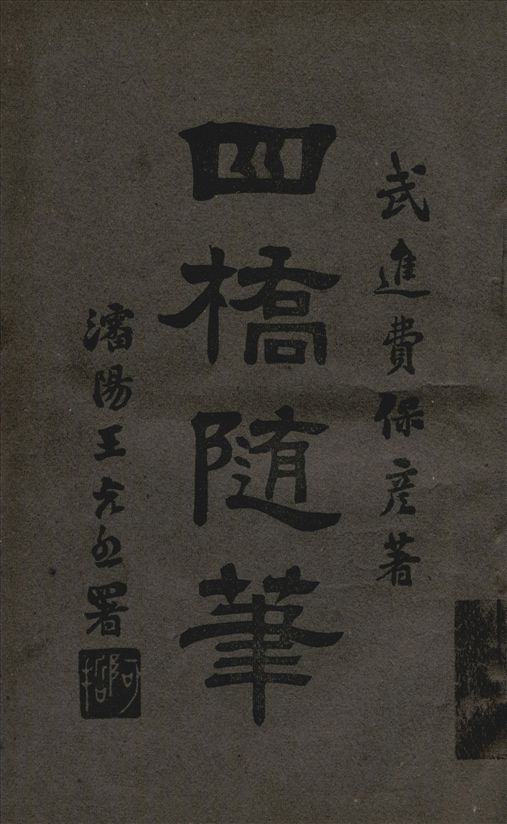 武進費保彥著
四橋隨筆
瀋陽王光烈署